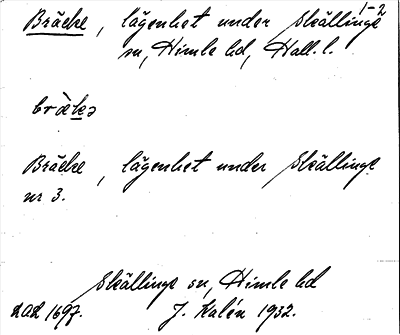 1-2
Bräcke, lägenhet under Skällinge
sn, Himle hd, Hall. l.
bræ̀kə
Bräcke, lägenhet under Skällinge
nr 3.
Skällinge sn, Himle hd
J. Kalén 1932.